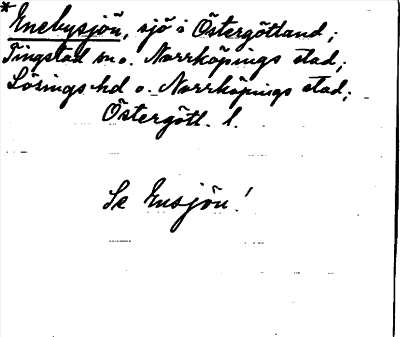 *Enebysjön, sjö i Östergötland;
Tingstad sn o. Norrköpings stad;
Lösings hd o. Norrköpings stad;
Östergötl. l.
Se Ensjön!